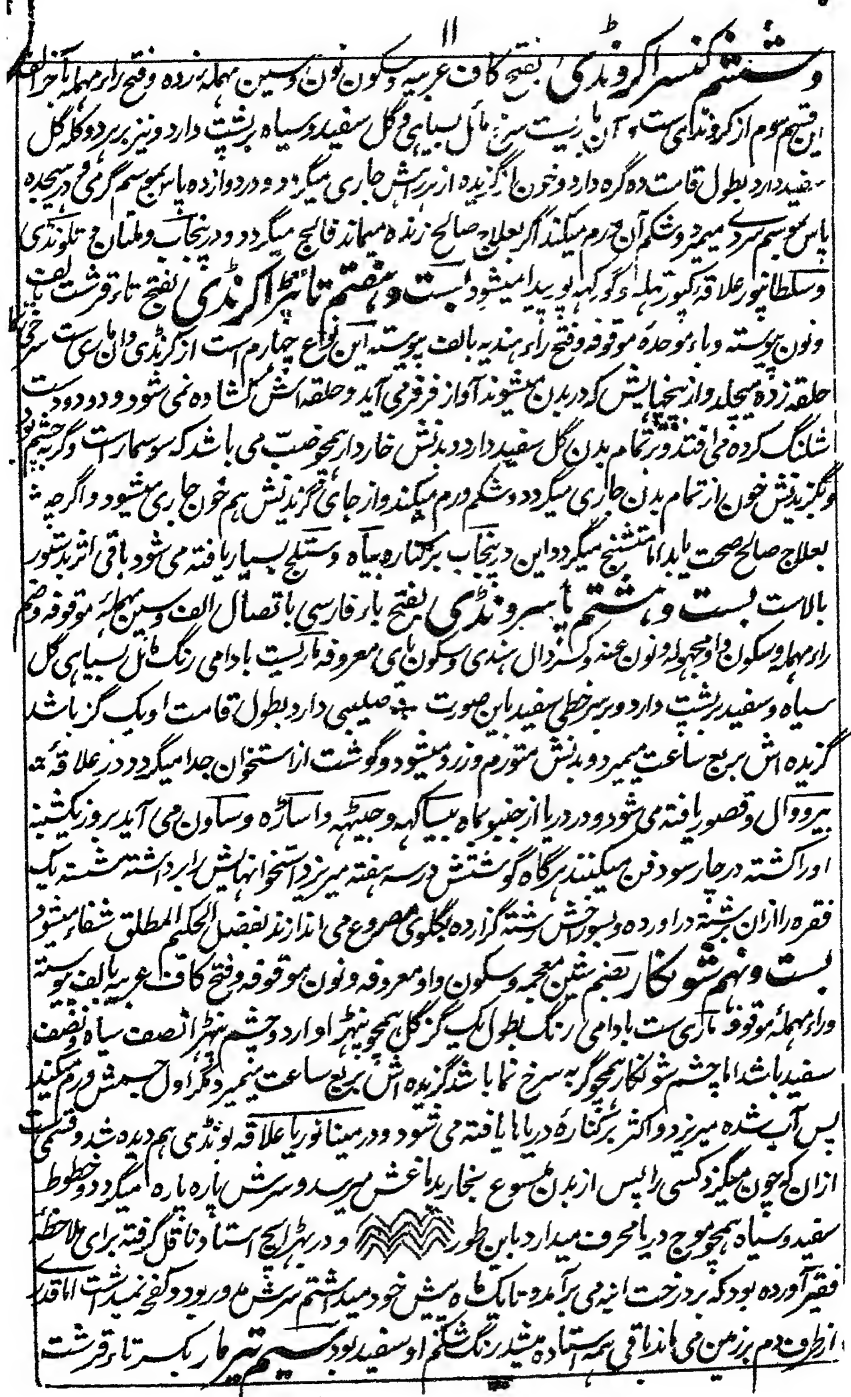 ۱۱
و ششم کنسرا کرونڈی بفتح کاف عربیه و سکون نون و سین مهملهٔ زده و فتح راء مهمله آخر الف
این قسم سوم از کرونڈی است و آن ماریست سرخ مائل بسیاهی و گل سفید و سیاه بر پشت دارد و نیز بر سر دو کله گل
سفید دارد بطول قامت ده گره دارد و خون از گزیده از هر ریش جاری میگردد و در دوازده پاس بموسم گرمی و در هیجده
پاس بموسم سردی میمیرد و شکم آن ورم میکند اگر بعلاج صالح زنده میماند فالج میگردد و در پنجاب و ملتان و تلونڈی
و سلطانپور علاقه کپورتهله و گورکهپور پیدا میشود بست و هفتم تانبڑا کرنڈی بفتح تاء قرشت بالف
و نون پیوسته و باء موحده موقوفه و فتح راء هندیه بالف پیوسته این نوع چهارم است از کرنڈی و آن ماری است سرخی نما
حلقه زده میچلد و از پیچهایش که در بدن میشوند آواز فرفر می آید و حلقه اش کشاده نمی شود و دو دو دست
شلنگ کرده می افتد و بر تمام بدن گل سفید دارد و بدنش خاردار همچو ضب می باشد که سوسمار است و گربه چشم بود
و بگزیدنش خون از تمام بدن جاری میگردد و شکم ورم میکند و از جای گزیدنش هم خون جاری میشود و اگرچه
بعلاج صالح صحت یابد اما متشنج میگردد و این در پنجاب بر کناره بیاه و ستلج بسیار یافته می شود باقی اثر بدستور
بالاست بست و هشتم پاسرونڈی بفتح باء فارسی باتصال الف و سین مهملهٔ موقوفه و ضم
راء مهمله و سکون واو مجهوله و نون غنه و کسر دال هندی و سکون یای معروفه ماریست بادامی رنگ مائل بسیاهی گل
سیاه و سفید بر پشت دارد و بر سر خطی سفید باین صورت صلیبی دارد بطول قامت او یک گز باشد
گزیده اش بربع ساعت میمیرد و بدنش متورم و زرد میشود و گوشت از استخوان جدا میگردد در علاقهٔ
بیرووال و قصور یافته می شود و در دریا از جنبو بماه بیساکهه و جیٹهه و اساڑه و ساون می آید بروز یکشنبه
او را کشته در چارسو دفن میکنند هرگاه گوشتش در سه هفته میریزد استخوانهایش را برداشته شسته یک
فقره را ازان برشته در آورده و بسوراخش رشته گزارده بگلوی مصروع می اندازند بفضل الحکیم المطلق شفاء میشود
بست و نهم شونکار بضم شین معجمه و سکون واو معروفه و نون موقوفه و فتح کاف عربیه بالف پیوسته
و راء مهملهٔ موقوفه ماری ست بادامی رنگ بطول یک گز گل همچو پنہڑا و دارد و چشم پنہڑا نصف سیاه و نصف
سفید باشد اما چشم شونکار همچو گربه سرخ نما باشد گزیده اش بربع ساعت میمیرد مگر اول جسمش ورم میکند
پس آب شده میریزد و اکثر بر کنارهٔ دریاها یافته می شود و در مینانوریا علاقه بونڈی هم دیده شد و قسمی است
ازان که چون میگزد کسی را پس از بدن ملسوع بخار بدماغش میرسد و سرش پاره پاره میگردد و خطوط
سفید و سیاه همچو موج دریا محرف میدارد باین طور و در بهڑایچ استاد ناقل گرفته برای ملاحظهٔ
فقیر آورده بود که بر درخت انبه می برآمد و تا یک ماه پیش خود میداشتم سرش مدور بود و کفچه نمیداشت اما قدری
از طرف دم بر زمین می ماند باقی همه استاده میشد رنگ شکم او سفید بود سیم تیر مار بکسر تاء قرشت